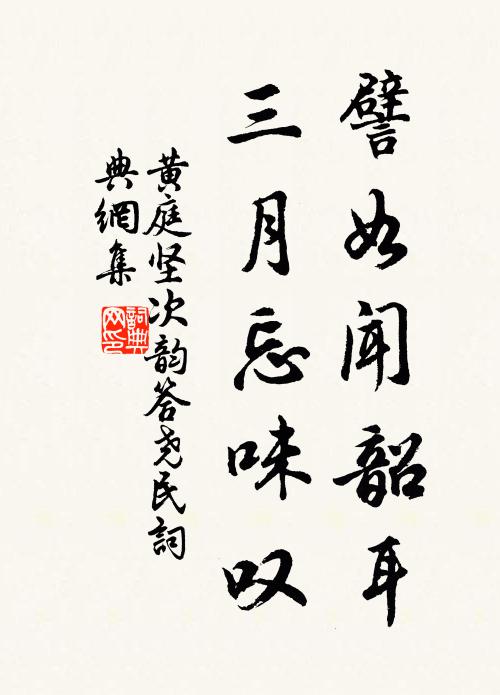 譬如闻韶耳
三月忘味叹
黄庭坚次韵答尧民詞
典網集
詞典
网印